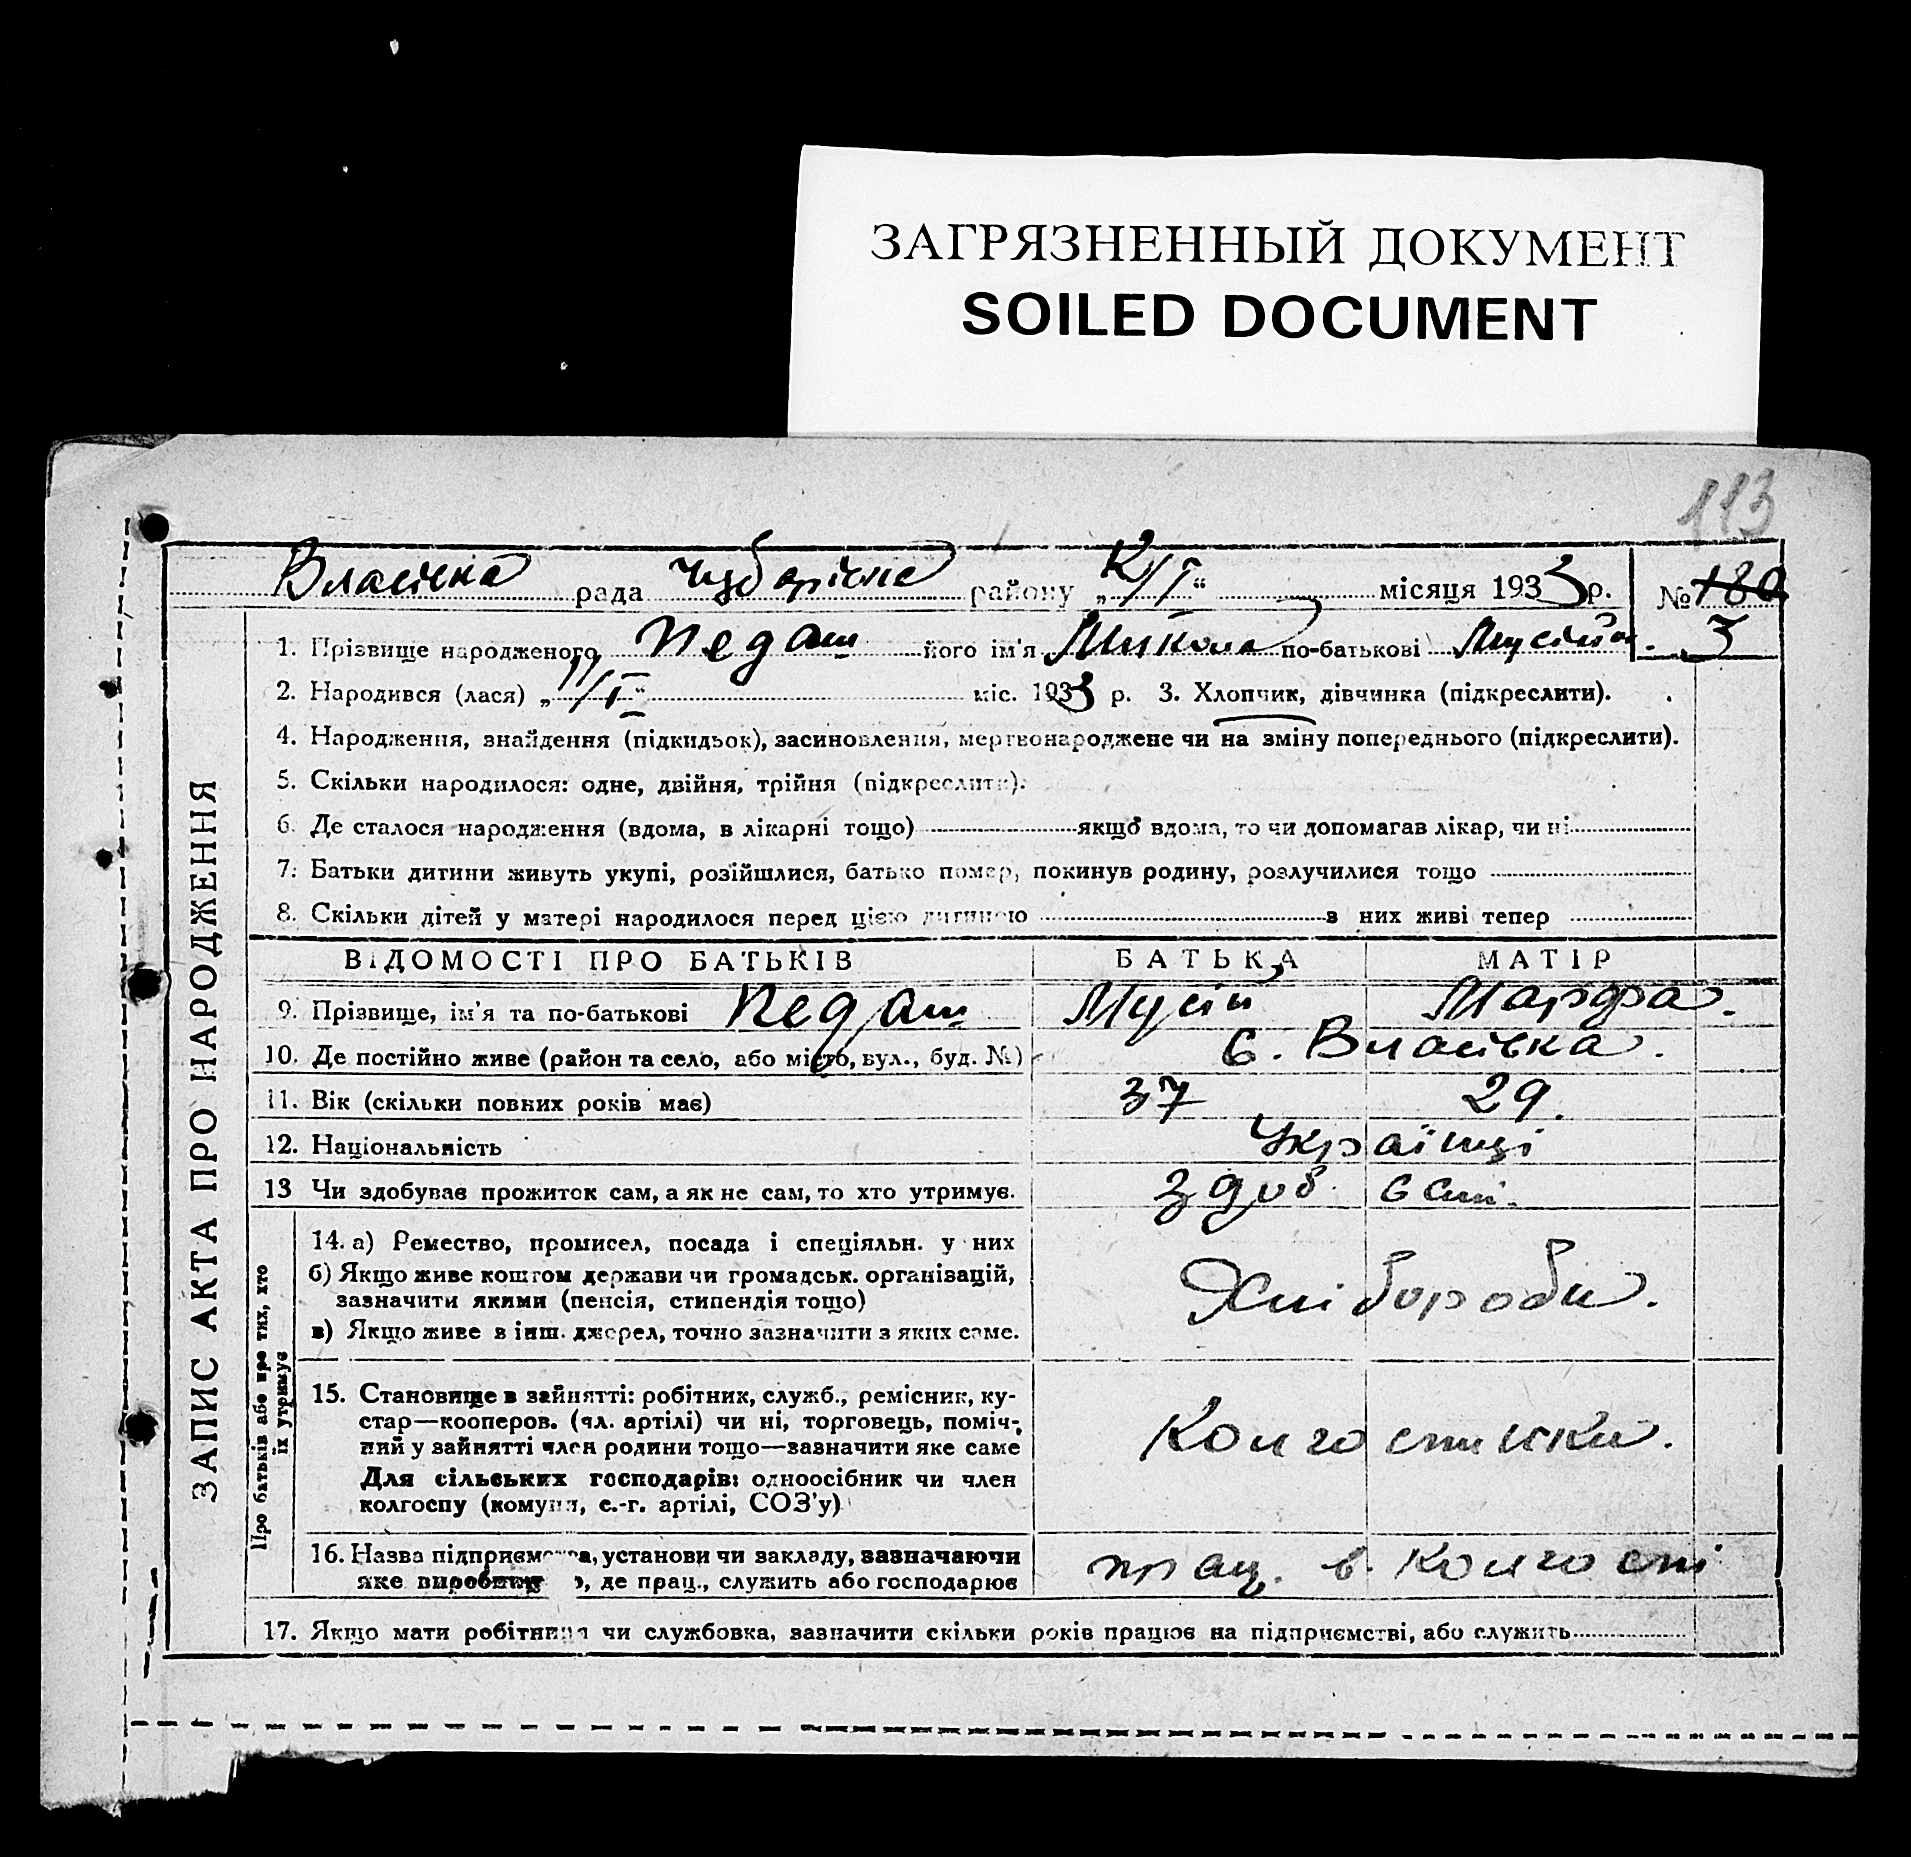 ЗАГРЯЗНЕННЫЙ ДОКУМЕНТ
SOILED DOCUMENT
113
Власівка рада Чубарівка району „ /I“ місяця 1933 р. № 180
3
1. Прізвище народженого Педаш його ім'я Микола по-батькові Мусійов.
2. Народився (лася) „ /I“ міс. 1933 р. 3. Хлопчик, дівчинка (підкреслити).
4. Народження, знайдення (підкидьок), засиновлення, мертвонароджене чи на зміну попереднього (підкреслити).
5. Скільки народилося: одне, двійня, трійня (підкреслити).
6. Де сталося народження (вдома, в лікарні тощо) якщо вдома, то чи допомагав лікар, чи ні
7. Батьки дитини живуть укупі, розійшлися, батько помер, покинув родину, розлучилися тощо
8. Скільки дітей у матері народилося перед цією дитиною з них живі тепер
ЗАПИС АКТА ПРО НАРОДЖЕННЯ
ВІДОМОСТІ ПРО БАТЬКІВ БАТЬКА МАТІР
9. Прізвище, ім'я та по-батькові Педаш Мусій Марфа.
10. Де постійно живе (район та село, або місто, вул., буд. №) с. Власівка.
11. Вік (скільки повних років має) 37 29.
12. Національність Українці
13 Чи здобував прожиток сам, а як не сам, то хто утримує. здоб. самі.
Про батьків або про тих, хто
їх утримує
14. а) Ремество, промисел, посада і спеціяльн. у них
б) Якщо живе коштом держави чи громадськ. організацій,
зазначити якими (пенсія, стипендія тощо)
в) Якщо живе в інш. джерел, точно зазначити з яких саме.
Хлібороби.
15. Становище в зайнятті: робітник, служб., ремісник, ку-
стар—кооперов. (чл. артілі) чи ні, торговець, поміч-
ний у зайнятті член родини тощо—зазначити яке саме
Для сільських господарів: одноосібник чи член
колгоспу (комуни, с.-г. артілі, СОЗ'у)
Колгоспники.
16. Назва підприємства, установи чи закладу, зазначаючи
яке виробництво, де прац., служить або господарює
прац. в. колгоспі
17. Якщо мати робітниця чи службовка, зазначити скільки років працює на підприємстві, або служить